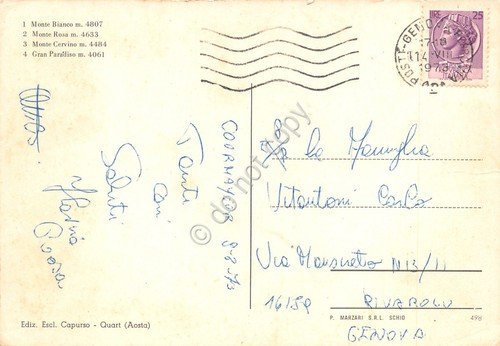 1 Monte Bianco m. 4807
2 Monte Rosa m. 4633
3 Monte Cervino m. 4484
4 Gran Paradiso m. 4061
COURMAYEUR 9-8-973
Tanti
cari
Saluti
Sp/le Famiglia
Vitantoni Carlo
Via Mansueto N13/11
16159 RIVAROLO
GENOVA
do not copy
25
POSTE-GENOVA
17-18
14 VIII
1973
Ediz. Escl. Capurso - Quart (Aosta)
P. MARZARI S.R.L. SCHIO
498